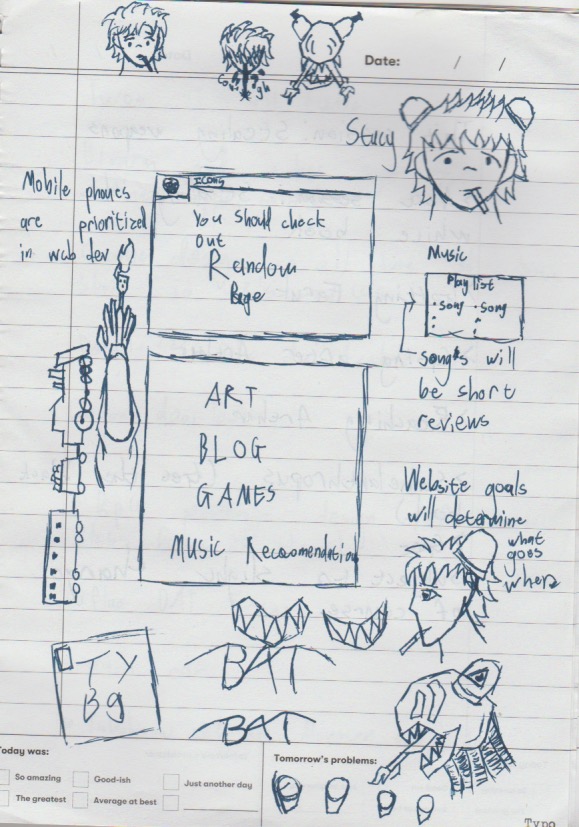 Date: / /
Stacy
Mobile phones
are prioritized
in web dev
ICONS
You should check
out
Random
Page
Music
Playlist
· song · song
songs will
be short
reviews
ART
BLOG
GAMES
MUSIC Reccomendation
Website goals
will determine
what
goes
where
BAT
BAT
TY
Bg
Today was:
So amazing
Good-ish
Just another day
The greatest
Average at best
Tomorrow's problems:
Typo